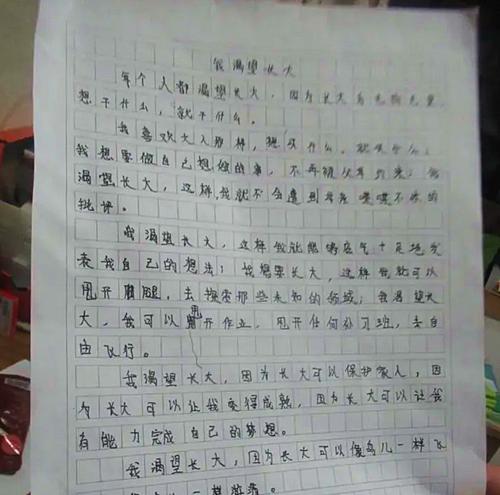 我渴望长大
每个人都渴望长大，因为长大
想干什么，就干什么。
我喜欢大人那样，想做什么，就做什么；
我想要做自己想做的事，不再被父母约束；我
渴望长大，这样我就不会遭到母亲喋喋不休的
批评。
我渴望长大，这样我就能够底气十足地发
表我自己的想法；我想要长大，这样我就可以
甩开腿，去探索那些未知的领域；我渴望长
大，我可以甩开作业，甩开任何补习班，去自
由飞行。
我渴望长大，因为长大可以保护家人，因
为长大可以让我变得成熟，因为长大可以让我
有能力完成自己的梦想。
我渴望长大，因为长大可以像鸟儿一样飞
一样